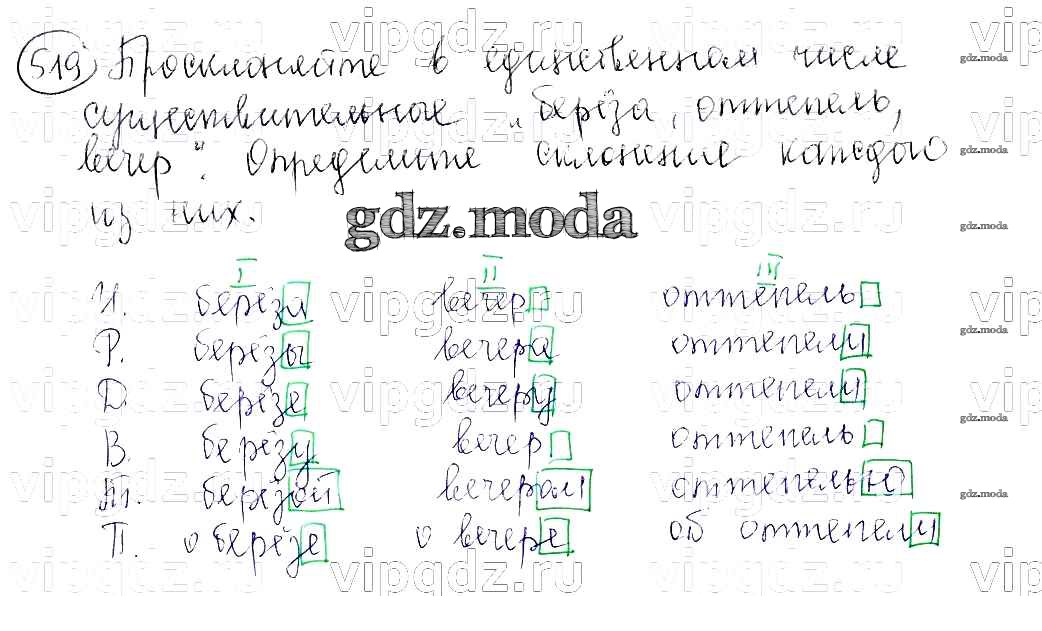 519 Просклоняйте в единственном числе
существительные „берёза, оттепель,
вечер". Определите склонение каждого
из них.
gdz.moda
I II III
И. берёза вечер оттепель
Р. берёзы вечера оттепели
Д. берёзе вечеру оттепели
В. берёзу вечер оттепель
Т. берёзой вечером оттепелью
П. о берёзе о вечере об оттепели
vipgdz.ru
gdz.moda